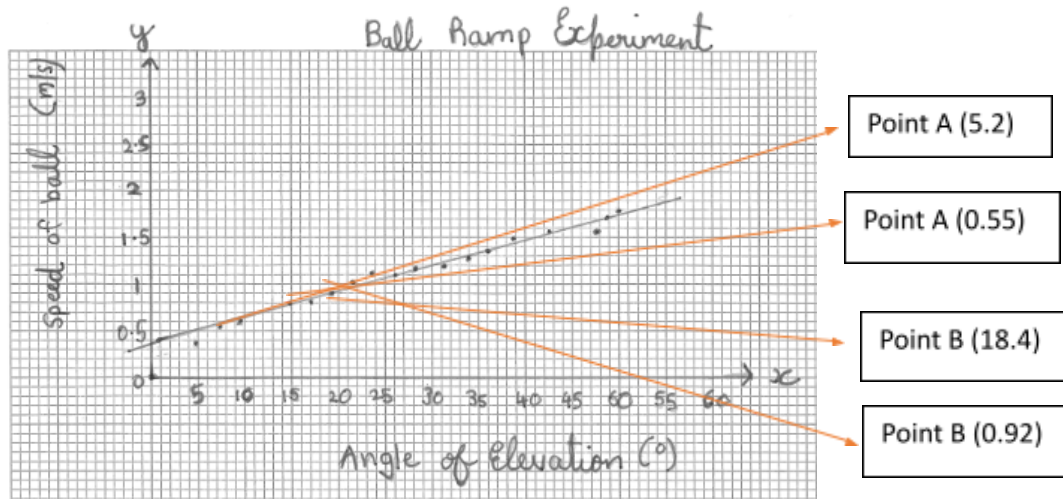 Ball Ramp Experiment
y
Speed of ball (m/s)
3
2.5
2
1.5
1
0.5
0
5 10 15 20 25 30 35 40 45 50 55 60
x
Angle of Elevation (°)
Point A (5.2)
Point A (0.55)
Point B (18.4)
Point B (0.92)